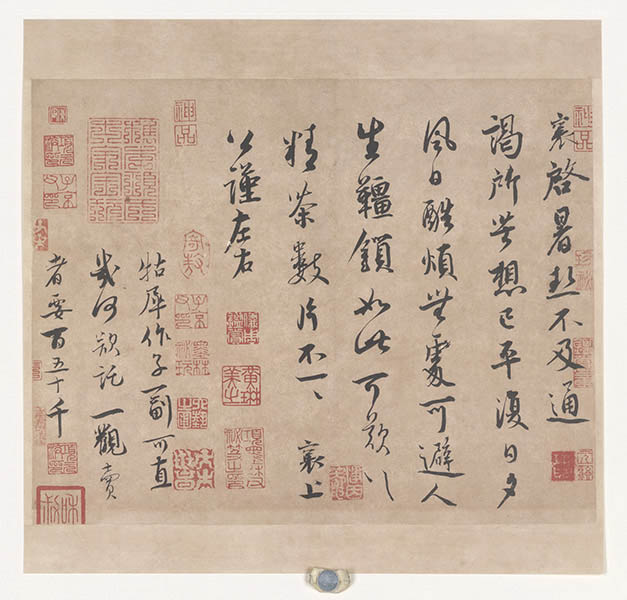 襄啓暑熱不及通
謁所苦想已平復日夕
風日酷煩無處可避人
生韁鎖如此可歎〻
精茶數片不一〻襄上
公謹左右
牯犀作子一副可直
幾何欲託一觀賣
者要百五十千
神品
神品